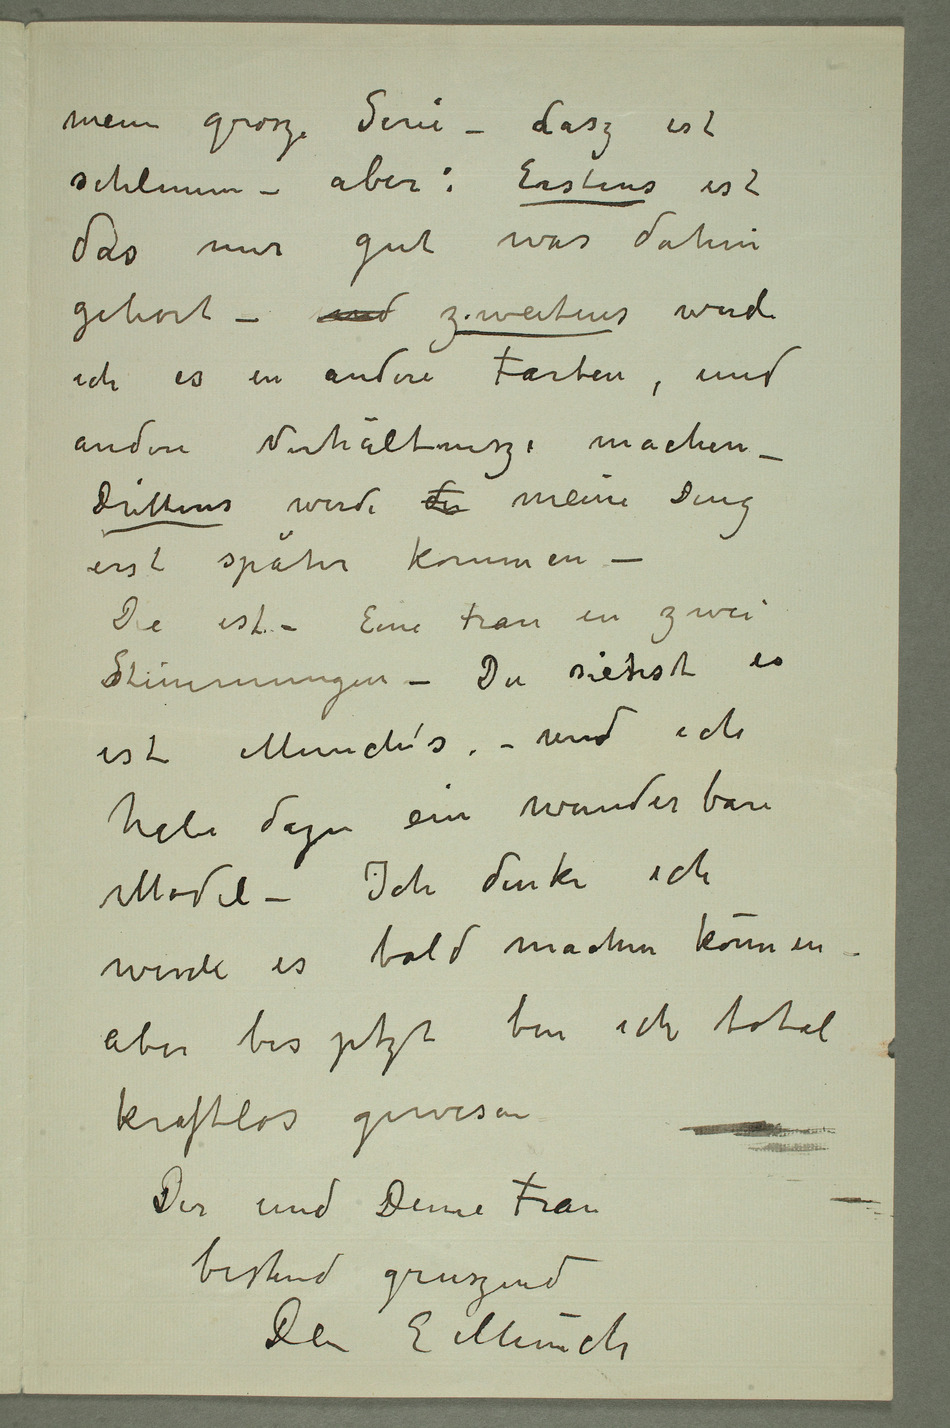 meine grosze Serie – dasz ist
schlimm – aber: Erstens ist
das nur gut was dahin
gehört – und zweitens werde
ich es in andere Farben, und
andere Verhältnisze machen –
Drittens werde die meine Ding
erst später kommen –
Die ist – Eine Frau in zwei
Stimmungen – Du siehst es
ist Munch's. – und ich
habe dazu ein wunderbare
Model – Ich denke ich
werde es bald machen können –
aber bis jetzt bin ich total
kraftlos gewesen
Dir und Deine Frau
bestend gruszend
Dein E Munch